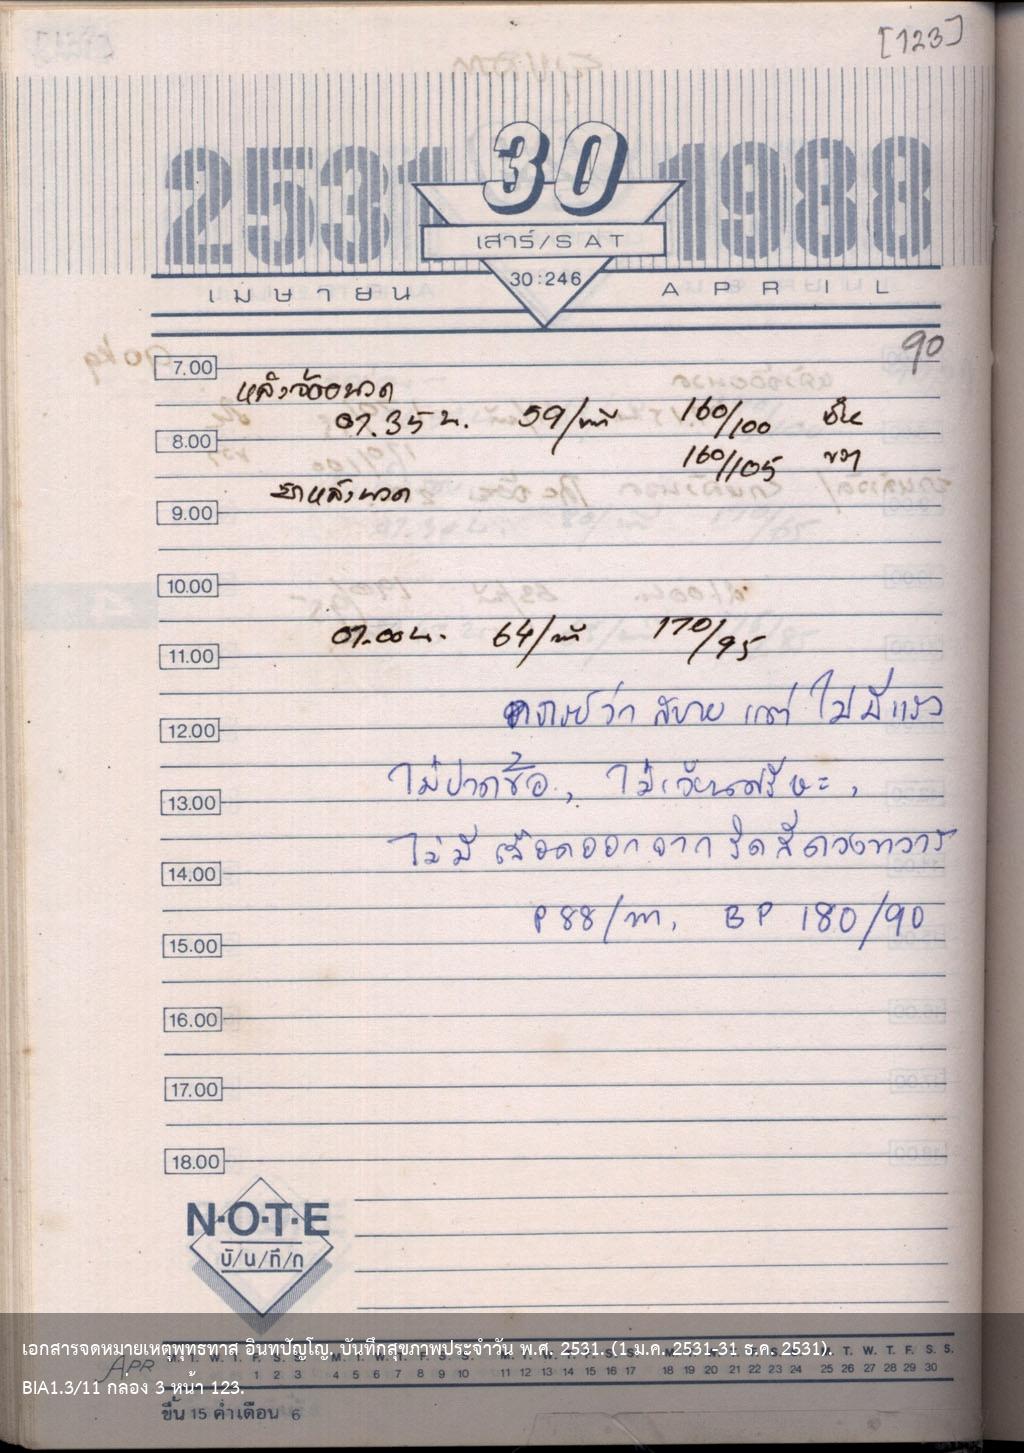 [123]
2531 30 1988
เสาร์/SAT
30:246
เมษายน APRIL
90
7.00
หลังจัอนวด
07.35 น. 59/นาที 160/100 ซ้าย
8.00
160/105 ขวา
ยาหลังนวด
9.00
10.00
07.00 น. 64/นาที 170/95
11.00
ว่า สบาย แต่ ไม่มีแรง
12.00
ไม่ปวดข้อ, ไม่เวียนศรีษะ,
13.00
ไม่มีเลือดออกจากริดสีดวงทวาร
14.00
P 88/m, BP 180/90
15.00
16.00
17.00
18.00
N·O·T·E
บั/น/ทึ/ก
เอกสารจดหมายเหตุพุทธทาส อินทปัญโญ. บันทึกสุขภาพประจำวัน พ.ศ. 2531. (1 ม.ค. 2531-31 ธ.ค. 2531).
APR M. T. W. T. F. S. S. M. T. W. T. F. S. S. M. T. W. T. F. S. S. M. T. W. T. F. S. S. M. T. W. T. F. S. S.
1 2 3 4 5 6 7 8 9 10 11 12 13 14 15 16 17 18 19 20 21 22 23 24 25 26 27 28 29 30
BIA1.3/11 กล่อง 3 หน้า 123.
ขึ้น 15 ค่ำเดือน 6